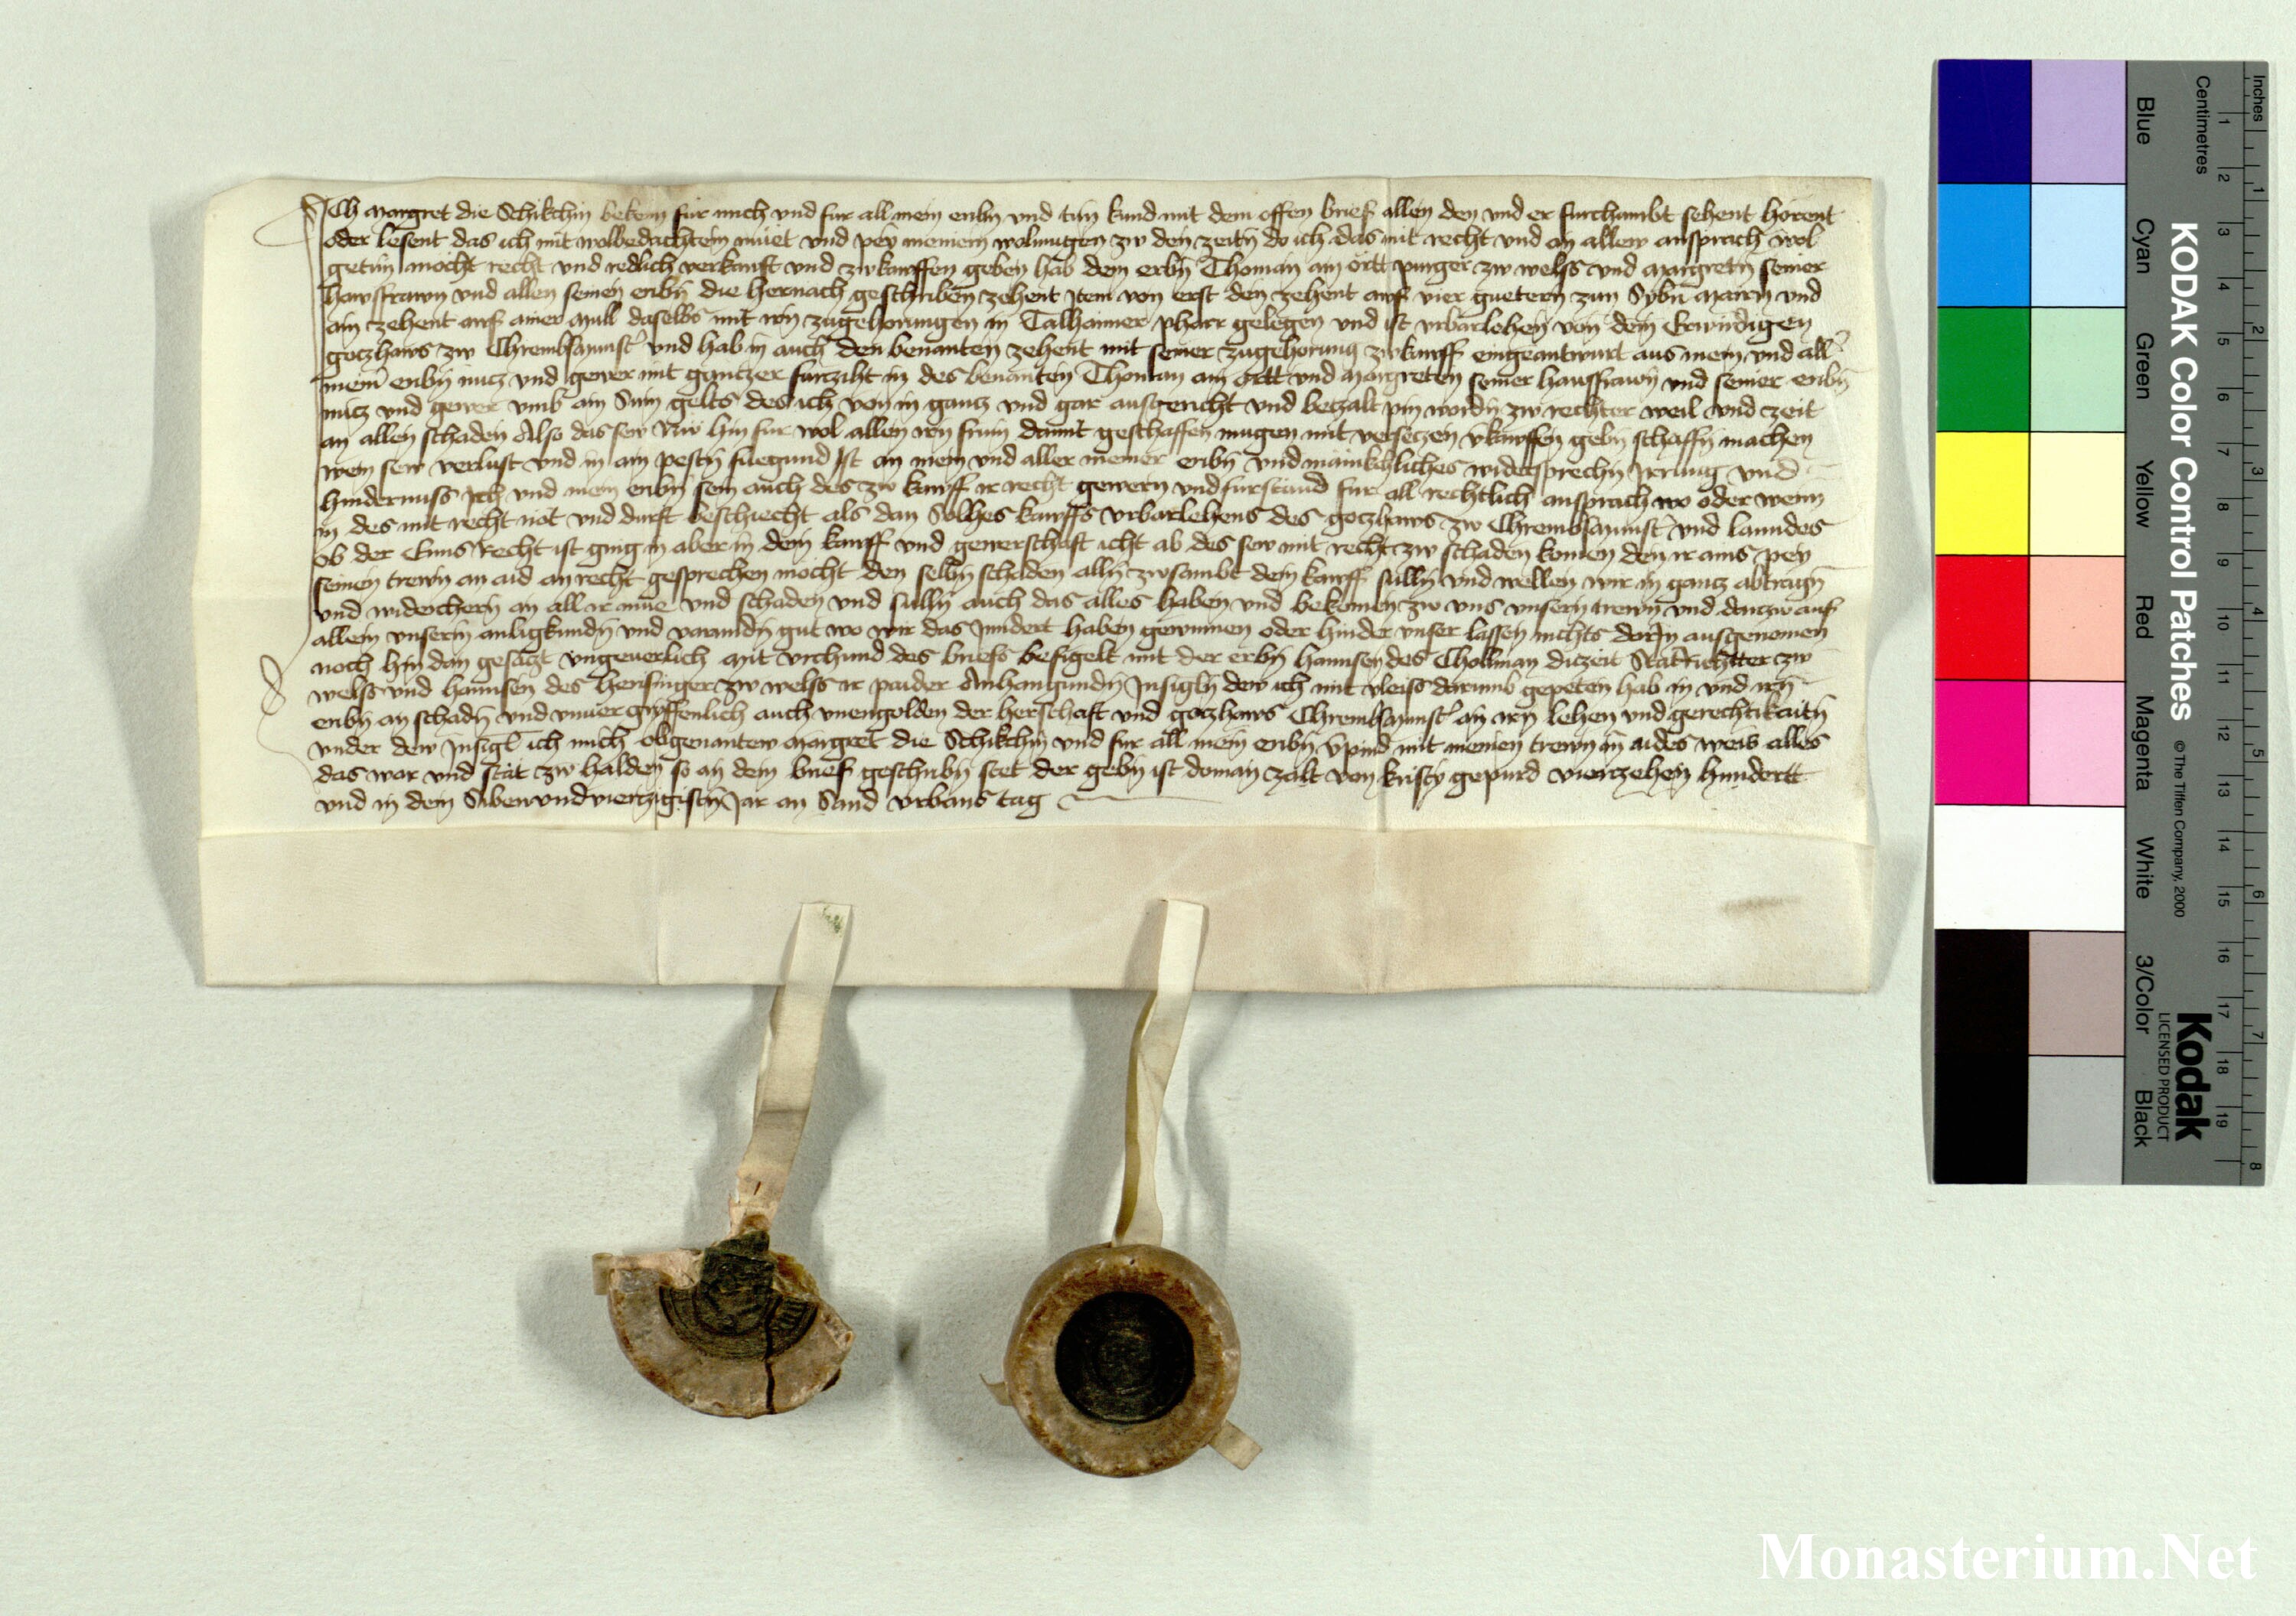 Ich Margret die Schikchin beken fur mich vnd fur all mein erbn vnd tun kund mit dem offen brief allen den vnd er furchambt sehent horent
oder lesent das ich mit wolbedachtem muet vnd pey meniem wolmugen zw den zeitn do ich das mit recht vnd an allew ansprach wol
getun mocht recht vnd redlich verkauft vnd zwkauffen geben hab dem erbn Thoman am ortt purger zw welss vnd Margretn seiner
hawsfrawn vnd allen seinen erbn die hernach geschriben zehent Item von erst den zehent auf vier guetern zun Sybn Mairn vnd
ain zehent auf ainer Mull daselbs mit irn zugehorungen in Talhaimer pharr gelegen vnd ist vrbarlehen von dem Erwirdigen
goczhaws zw Chrembsmunst vnd hab in auch den benanten zehent mit seiner zugehorung zwkauff eingeantwurt aus mein vnd all
meiner erbn nucz vnd gewer mit gantzer furziht in des benanten Thoman am Ortt vnd Margreten seiner hawsfrawn vnd seiner erbn
nucz vnd gewer vmb ain Sum gelts des ich von in gancz vnd gar ausgericht vnd betzalt pin wordn zw rechter weil vnd zeit
an allen schaden Also das sew nw hin fur wol allen irn frum damit geschaffen mugen mit verseczen vkauffen gebn schaffn machen
wem sew verlust vnd in am pestn fuegund Ist an mein vnd aller meiner erbn vnd mainkchliches widersprechn Irrung vnd
hindernuss Ich vnd mein erbn sein auch des zw kauff ir recht gewern vnd furstand fur all rechtlich ansprach wo oder wenn
in des mit recht not vnd durft beschiecht als dan Solhes kauffs vrbarlehens des goczhaws zw Chrembsmunst vnd lanndes
ob der Enns Recht ist ging in aber in dem kauff vnd gewerschaft icht ab des sew mit recht zw schaden komen den ir ains pey
seinen trewn an aid an recht gesprechen mocht den selbn schaden alln zwsambt dem kauff sulln vnd wellen wir in gancz abtragn
vnd widerchern an all ir mue vnd schaden vnd sulln auch das alles haben vnd bekomen zw vns vnsern trewn vnd darzw auf
allem vnserm anligkundn vnd varundn gut wo wir das Inndert haben gewunnen oder hinder vnser lassen nichts dorIn ausgenomen
noch hin dan gesaczt vngeuerlich Mit vrchund des briefs besigelt mit der erbn hannsen des Chollman diczeit Statrichtter zw
welss vnd hannsen des hensinger zw welss ir paider Anhangundn Insigln dew ich mit vleiss darumb gepeten hab in vnd irn
erbn an schadn vnd vnuer gryffenlich auch vnengolden der herschaft vnd goczhaws Chrembsmunst an irn lehen vnd gerechtikaitn
vnder dew Insigl ich mich obgenantew Margret die Schikchin vnd fur all mein erbn vpind mit meinen trewn in aides weis alles
das war vnd stat zw halden so an dem brief geschribn stet der gebn ist doman zalt von kristy gepurd vierzehen hundertt
vnd in dem Sibenvndvierzigistn Jar an Sand vrbans tag
Inches
Centimetres
1 2 3 4 5 6 7 8
1 2 3 4 5 6 7 8 9 10 11 12 13 14 15 16 17 18 19
KODAK Color Control Patches
© The Tiffen Company, 2000
Kodak
LICENSED PRODUCT
Blue Cyan Green Yellow Red Magenta White 3/Color Black
Monasterium.Net